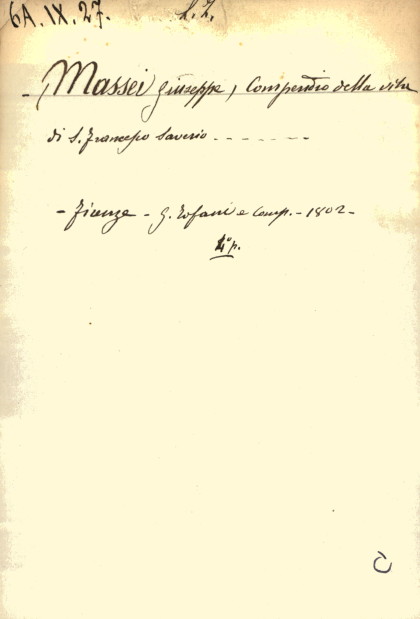 6A.IX.27.
- Massei Giuseppe, Compendio della vita
di S. Francesco Saverio - - - - - - -
- Firenze - G. Tofani e Comp. - 1802 -
4° p.